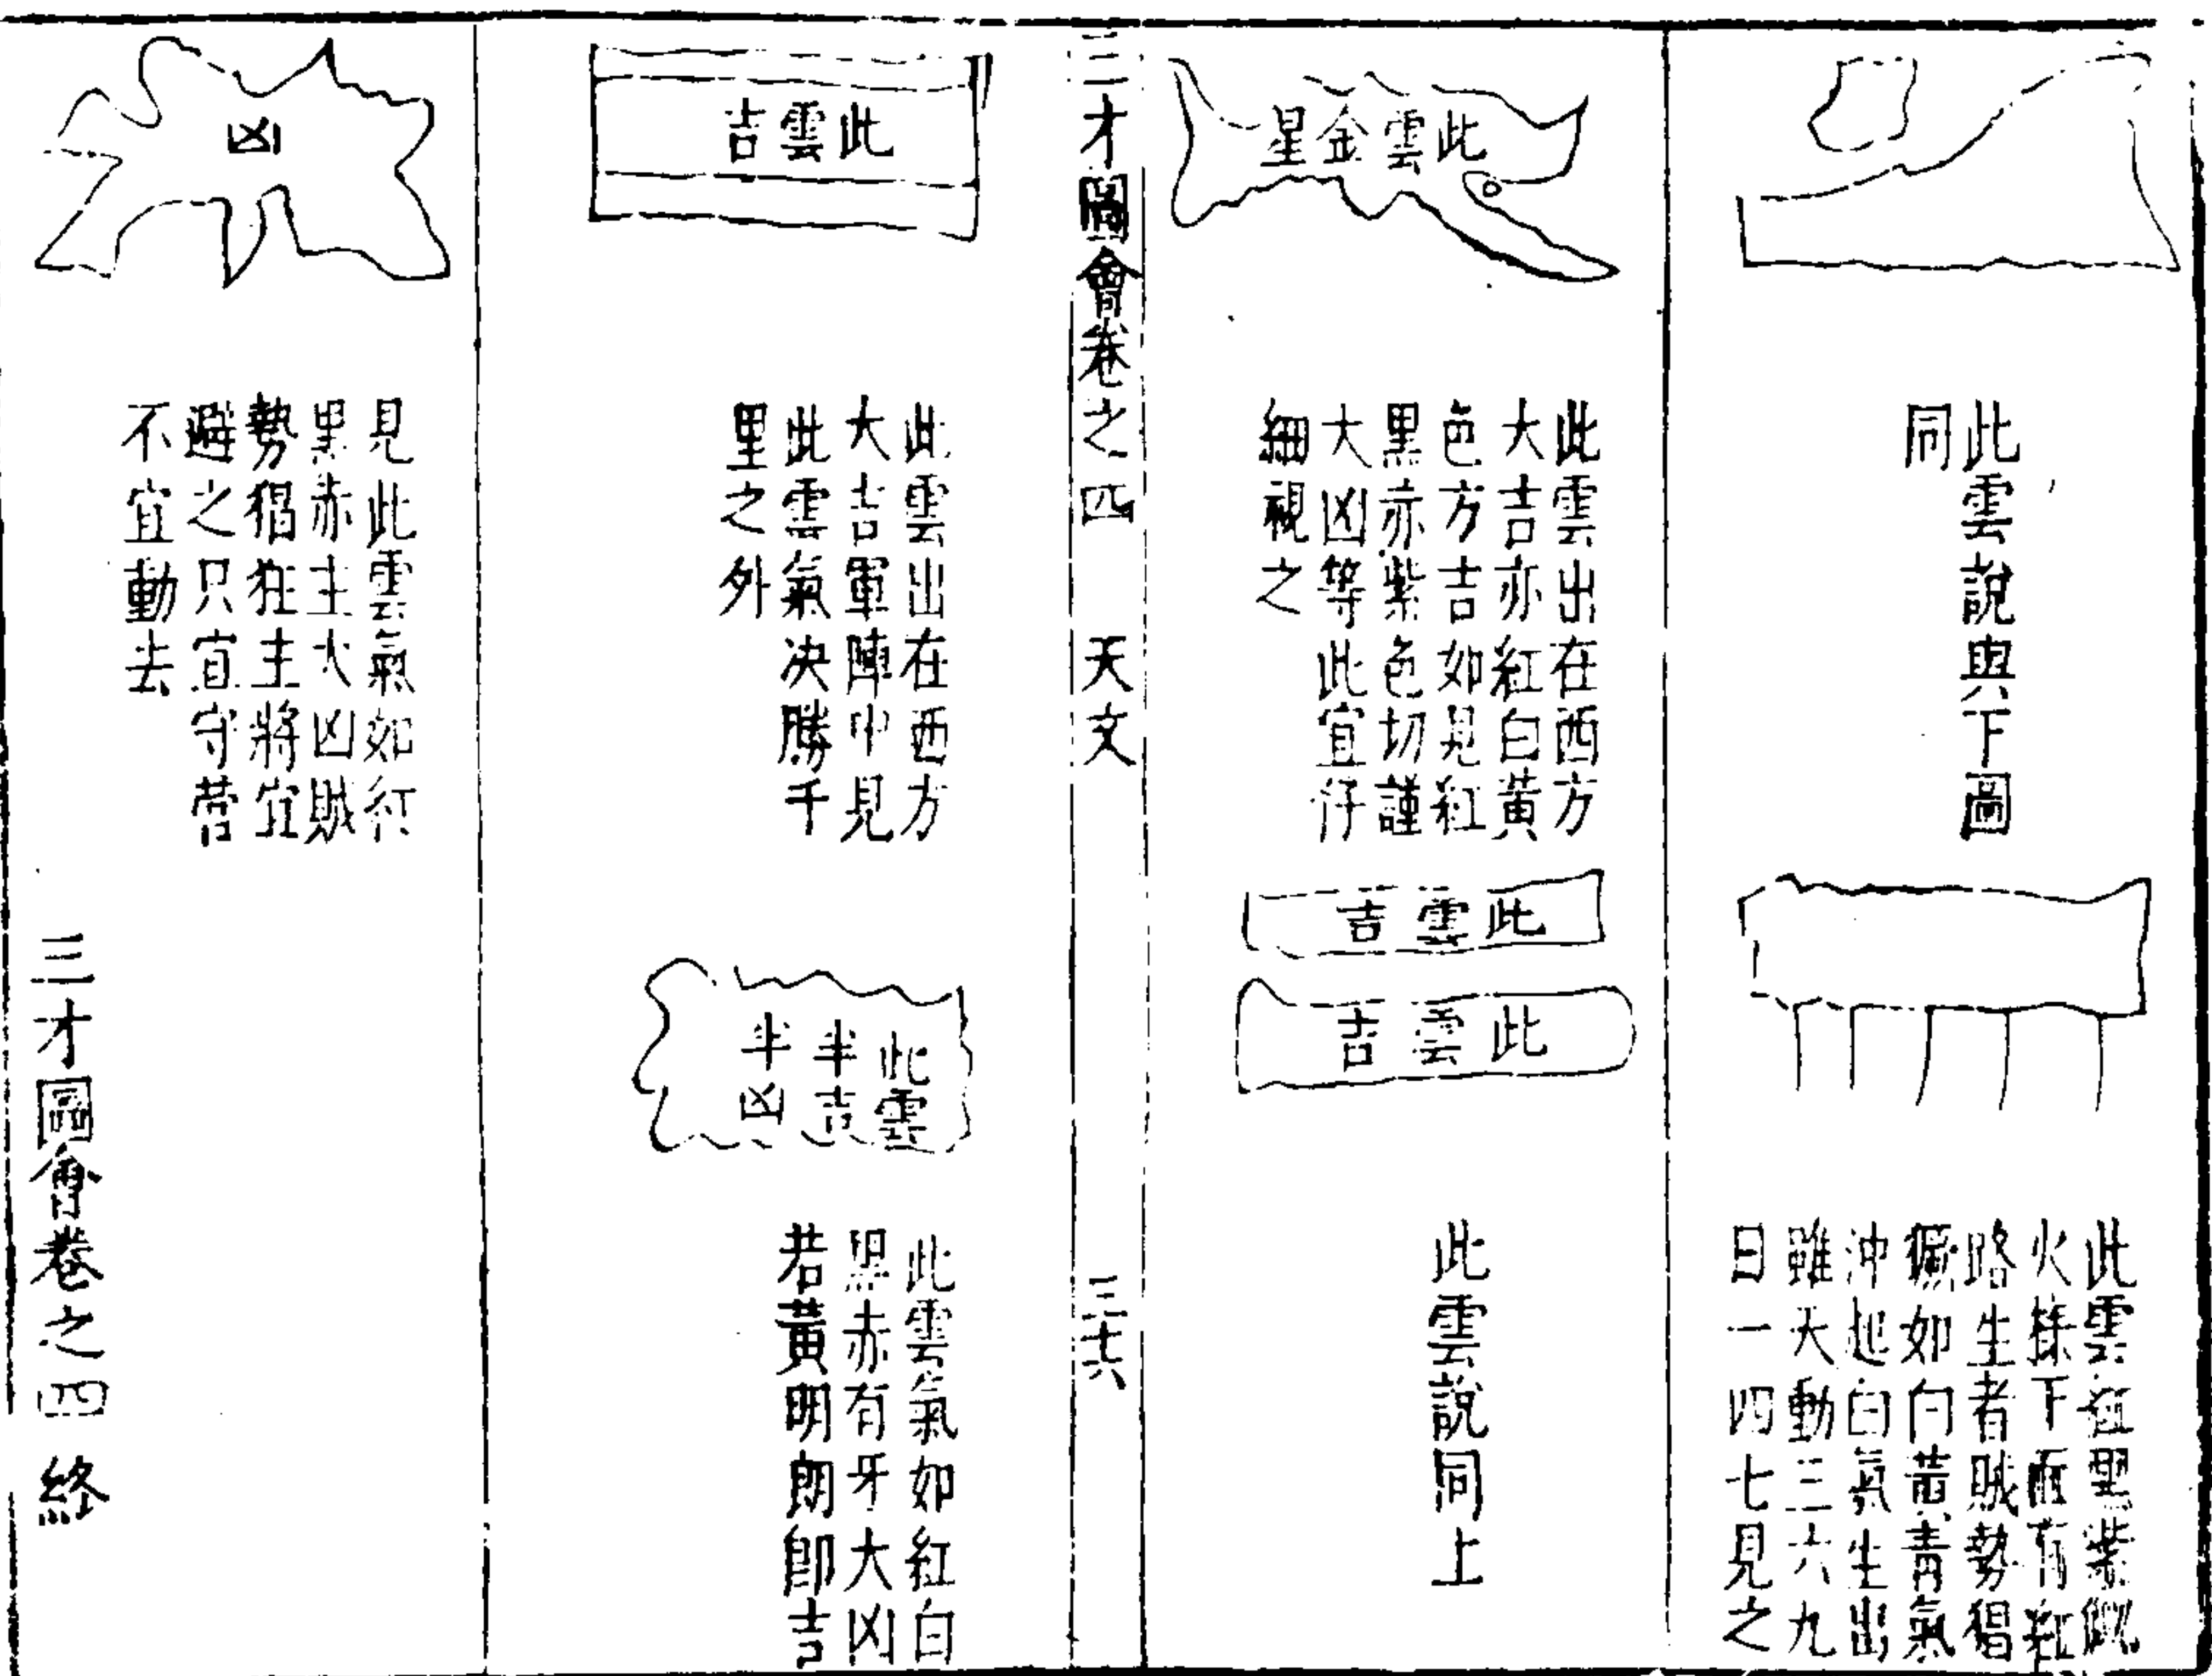 此雲說與下圖
同
此雲紅黑紫似
火樣下面有紅
路生者賊勢猖
獗如白黃青氣
沖起白氣生出
雖天動三六九
日一四七見之
此雲金星
此雲出在西方
大吉亦紅白黃
色方吉如見紅
黑赤紫色切謹
大凶等此宜仔
細視之
此雲吉
此雲吉
此雲說同上
三才圖會卷之四 天文 三十六
此雲吉
此雲出在西方
大吉軍陣中見
此雲氣决勝千
里之外
此雲
半吉
半凶
此雲氣如紅白
黑赤有牙大凶
若黃明朗即吉
凶
見此雲氣如紅
黑赤主大凶賊
勢猖狂主將宜
避之只宜守營
不宜動去
三才圖會卷之四終